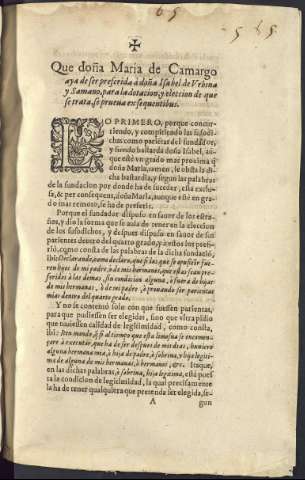 65
565
✠
Que doña Maria de Camargo
aya de ser preferida à doña Isabel de Vrbina
y Samano, para la dotacion, y eleccion de que
se trata, se prueua ex sequentibus.
LO PRIMERO, porque concur-
riendo, y compitiendo las susodi-
chas como parietas del fundador,
y siendo bastarda doña Isabel, aũ-
que esté vn grado mas proxima q̃
doña Maria, tamen, le obsta la di-
cha bastardia, segun las palabras
de la fundacion por donde ha de suceder, està exclu-
sa, & per consequens, doña Maria, aunque estè en gra-
do mas remoto, se ha de preferir.
Porque el fundador dispuso en fauor de los estra-
ños, y dio la forma que se auia de tener en la eleccion
de los susodichos, y despues dispuso en fauor de sus
parientes dentro del quarto grado, y à estos los prefi-
riò, como consta de las palabras de la dicha fundaciõ,
ibi: Declarando, como declaro, que si las que se opusieren fue-
ren hijas de mi padre, ò de mis hermanas, que estas sean pre-
feridas à las demas, sin condicion alguna, ò fuera de hijas
de mis hermanas, y de mi padre, ò prouando ser parientas
mias dentro del quarto grado.
Y no se contentò solo con que fuessen parientas,
para que pudiessen ser elegidas, sino que vltra pidio
que tuuiessen calidad de legitimidad, como consta,
ibi: Iten mando, q̃ si al tiempo que esta
alguna hermana mia, ò hija de padre, ò sobrina, y hija legiti-
ma de alguna de mis hermanas, ò hermanos, &c. Itaque, en
en las dichas palabras, ò sobrina, hija legitima, està pues-
ta la condicion de legitimidad, la qual precisamente
la ha de tener qualquiera que pretenda ser elegida, se-
A gun